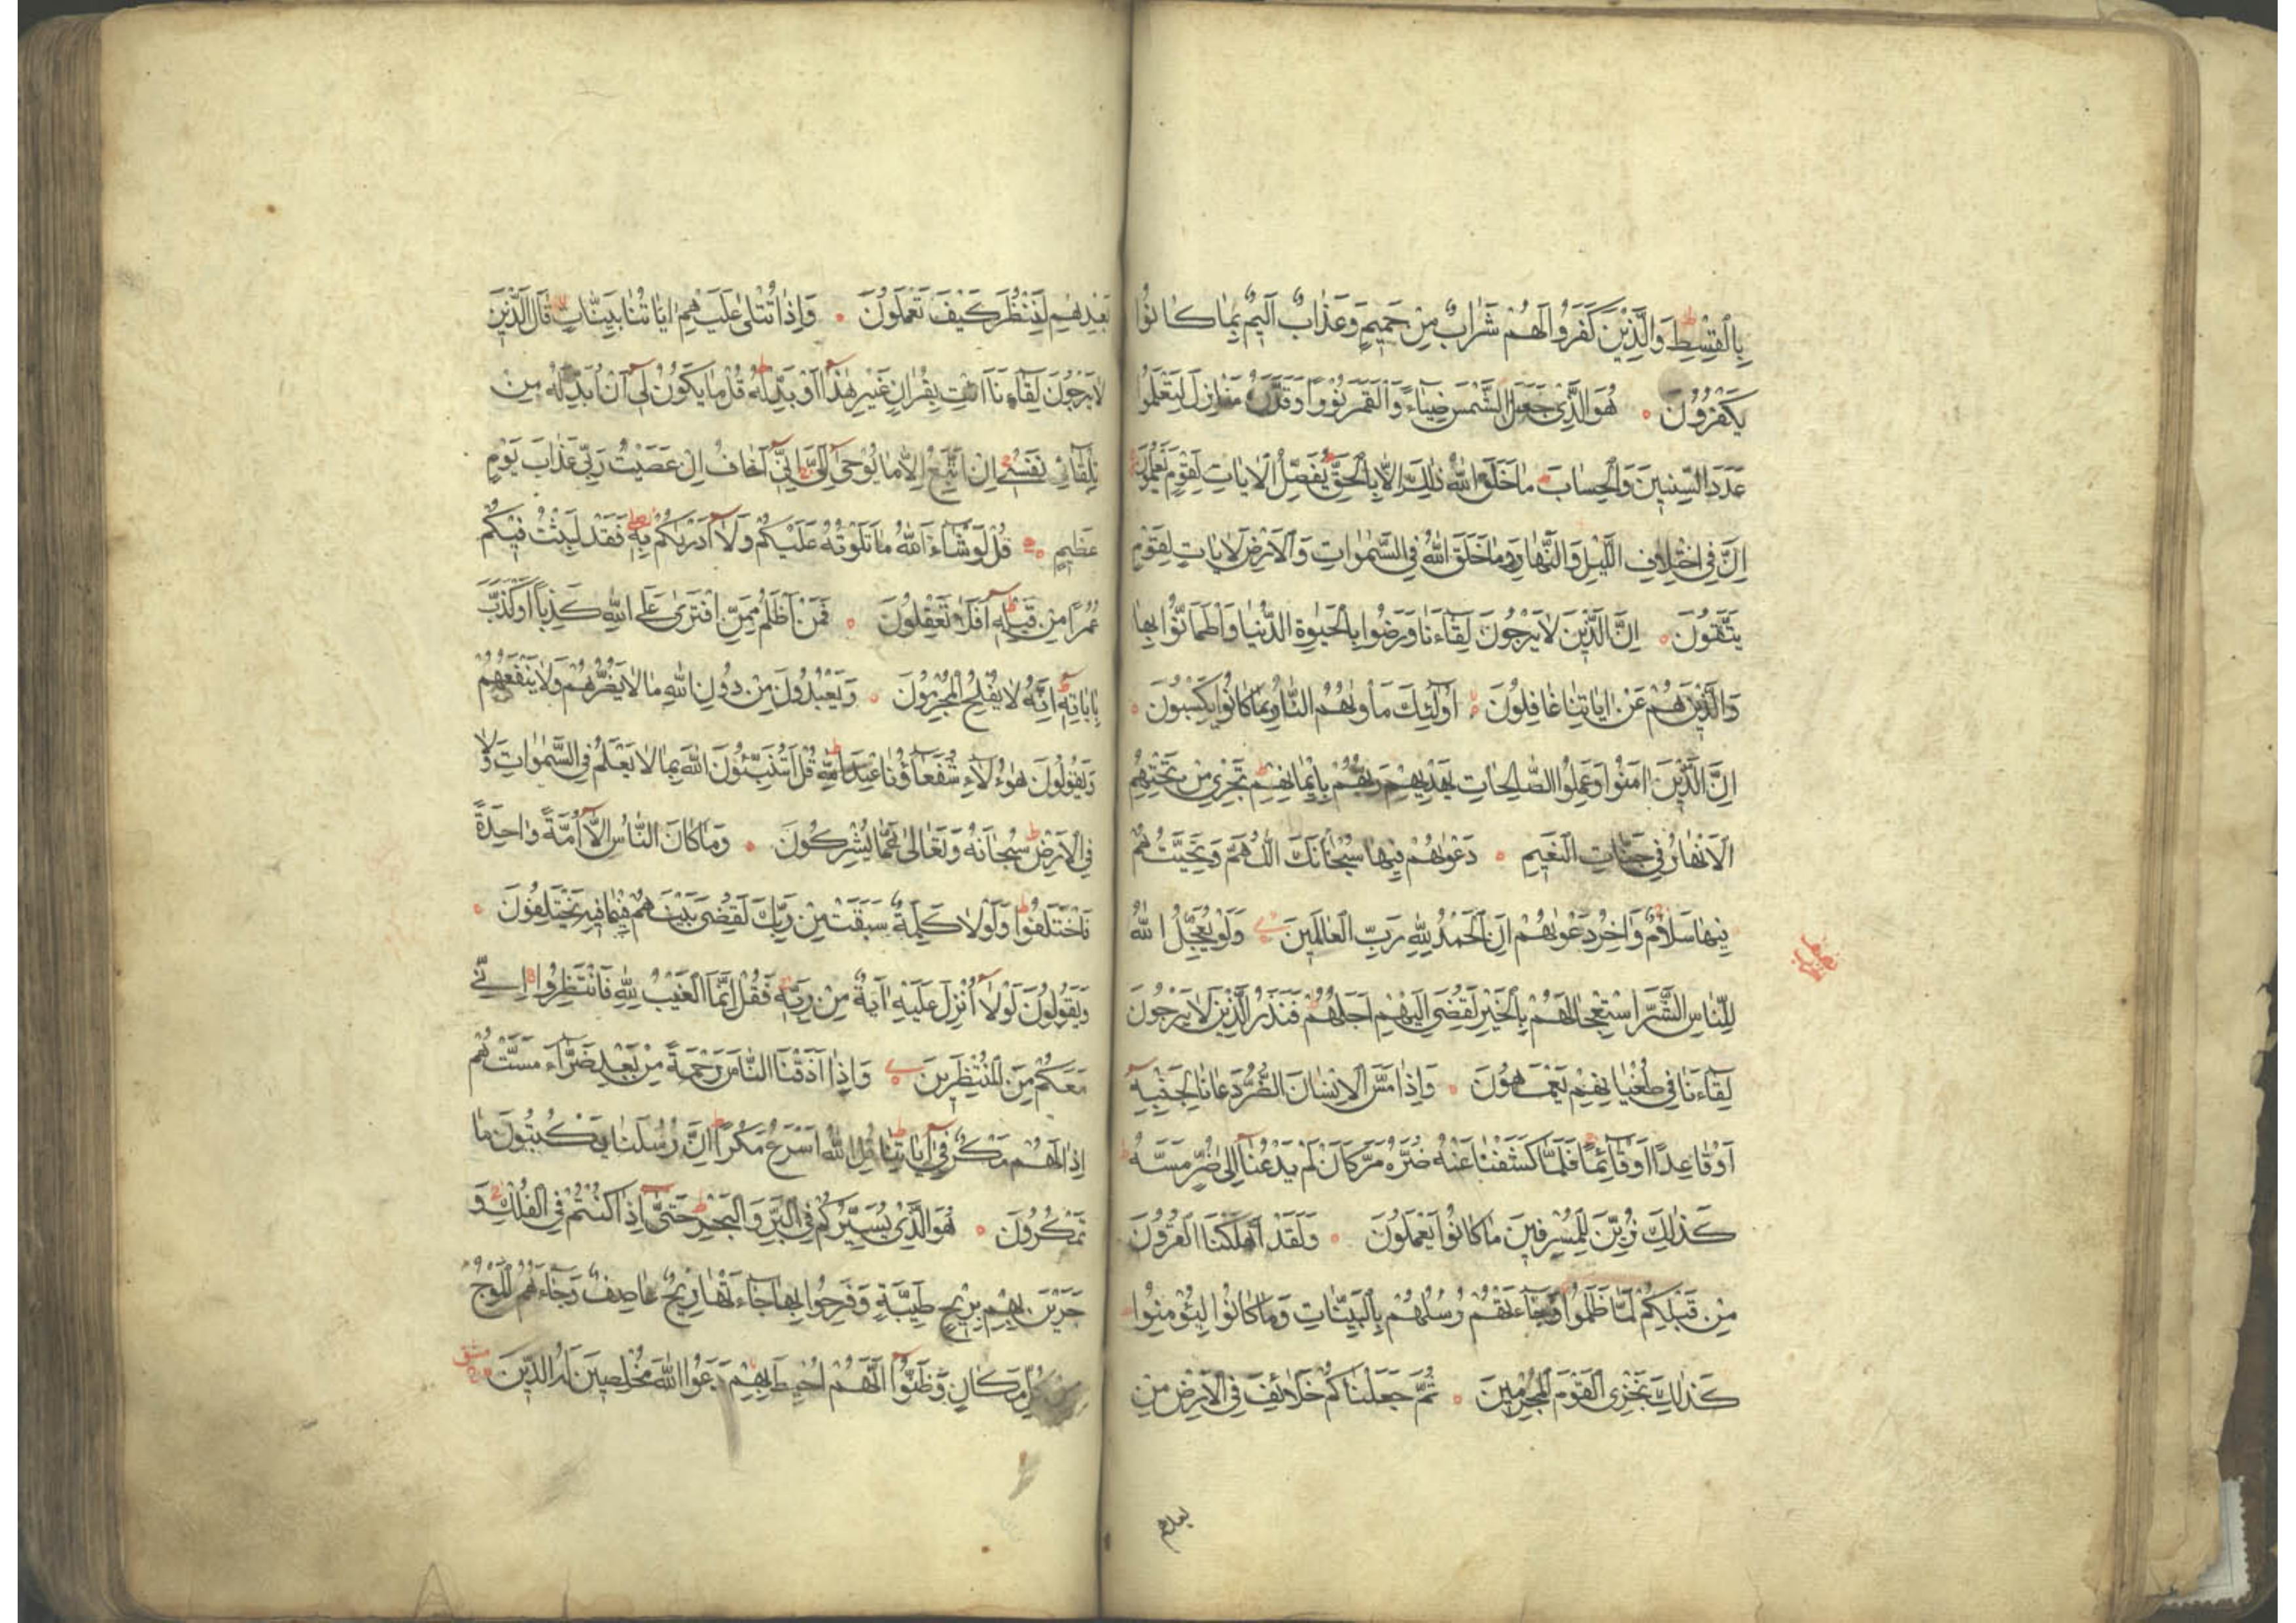 بِالْقِسْطِ وَالَّذِينَ كَفَرُوا لَهُمْ شَرَابٌ مِنْ حَمِيمٍ وَعَذَابٌ أَلِيمٌ بِمَا كَانُوا
يَكْفُرُونَ هُوَ الَّذِي جَعَلَ الشَّمْسَ ضِيَاءً وَالْقَمَرَ نُورًا وَقَدَّرَهُ مَنَازِلَ لِتَعْلَمُوا
عَدَدَ السِّنِينَ وَالْحِسَابَ مَا خَلَقَ اللَّهُ ذَلِكَ إِلَّا بِالْحَقِّ يُفَصِّلُ الْآيَاتِ لِقَوْمٍ يَعْلَمُونَ
إِنَّ فِي اخْتِلَافِ اللَّيْلِ وَالنَّهَارِ وَمَا خَلَقَ اللَّهُ فِي السَّمَوَاتِ وَالْأَرْضِ لَآيَاتٍ لِقَوْمٍ
يَتَّقُونَ إِنَّ الَّذِينَ لَا يَرْجُونَ لِقَاءَنَا وَرَضُوا بِالْحَيَوةِ الدُّنْيَا وَاطْمَأَنُّوا بِهَا
وَالَّذِينَ هُمْ عَنْ آيَاتِنَا غَافِلُونَ أُولَئِكَ مَأْوَاهُمُ النَّارُ بِمَا كَانُوا يَكْسِبُونَ
إِنَّ الَّذِينَ آمَنُوا وَعَمِلُوا الصَّالِحَاتِ يَهْدِيهِمْ رَبُّهُمْ بِإِيمَانِهِمْ تَجْرِي مِنْ تَحْتِهِمُ
الْأَنْهَارُ فِي جَنَّاتِ النَّعِيمِ دَعْوَاهُمْ فِيهَا سُبْحَانَكَ اللَّهُمَّ وَتَحِيَّتُهُمْ
فِيهَا سَلَامٌ وَآخِرُ دَعْوَاهُمْ أَنِ الْحَمْدُ لِلَّهِ رَبِّ الْعَالَمِينَ وَلَوْ يُعَجِّلُ اللَّهُ
لِلنَّاسِ الشَّرَّ اسْتِعْجَالَهُمْ بِالْخَيْرِ لَقُضِيَ إِلَيْهِمْ أَجَلُهُمْ فَنَذَرُ الَّذِينَ لَا يَرْجُونَ
لِقَاءَنَا فِي طُغْيَانِهِمْ يَعْمَهُونَ وَإِذَا مَسَّ الْإِنْسَانَ الضُّرُّ دَعَانَا لِجَنْبِهِ
أَوْ قَاعِدًا أَوْ قَائِمًا فَلَمَّا كَشَفْنَا عَنْهُ ضُرَّهُ مَرَّ كَأَنْ لَمْ يَدْعُنَا إِلَى ضُرٍّ مَسَّهُ
كَذَلِكَ زُيِّنَ لِلْمُسْرِفِينَ مَا كَانُوا يَعْمَلُونَ وَلَقَدْ أَهْلَكْنَا الْقُرُونَ
مِنْ قَبْلِكُمْ لَمَّا ظَلَمُوا وَجَاءَتْهُمْ رُسُلُهُمْ بِالْبَيِّنَاتِ وَمَا كَانُوا لِيُؤْمِنُوا
كَذَلِكَ نَجْزِي الْقَوْمَ الْمُجْرِمِينَ ثُمَّ جَعَلْنَاكُمْ خَلَائِفَ فِي الْأَرْضِ مِنْ
بعدهم
بَعْدِهِمْ لِنَنْظُرَ كَيْفَ تَعْمَلُونَ وَإِذَا تُتْلَى عَلَيْهِمْ آيَاتُنَا بَيِّنَاتٍ قَالَ الَّذِينَ
لَا يَرْجُونَ لِقَاءَنَا ائْتِ بِقُرْآنٍ غَيْرِ هَذَا أَوْ بَدِّلْهُ قُلْ مَا يَكُونُ لِي أَنْ أُبَدِّلَهُ مِنْ
تِلْقَائِ نَفْسِي إِنْ أَتَّبِعُ إِلَّا مَا يُوحَى إِلَيَّ إِنِّي أَخَافُ إِنْ عَصَيْتُ رَبِّي عَذَابَ يَوْمٍ
عَظِيمٍ قُلْ لَوْ شَاءَ اللَّهُ مَا تَلَوْتُهُ عَلَيْكُمْ وَلَا أَدْرَاكُمْ بِهِ فَقَدْ لَبِثْتُ فِيكُمْ
عُمُرًا مِنْ قَبْلِهِ أَفَلَا تَعْقِلُونَ فَمَنْ أَظْلَمُ مِمَّنِ افْتَرَى عَلَى اللَّهِ كَذِبًا أَوْ كَذَّبَ
بِآيَاتِهِ إِنَّهُ لَا يُفْلِحُ الْمُجْرِمُونَ وَيَعْبُدُونَ مِنْ دُونِ اللَّهِ مَا لَا يَضُرُّهُمْ وَلَا يَنْفَعُهُمْ
وَيَقُولُونَ هَؤُلَاءِ شُفَعَاؤُنَا عِنْدَ اللَّهِ قُلْ أَتُنَبِّئُونَ اللَّهَ بِمَا لَا يَعْلَمُ فِي السَّمَوَاتِ وَلَا
فِي الْأَرْضِ سُبْحَانَهُ وَتَعَالَى عَمَّا يُشْرِكُونَ وَمَا كَانَ النَّاسُ إِلَّا أُمَّةً وَاحِدَةً
فَاخْتَلَفُوا وَلَوْلَا كَلِمَةٌ سَبَقَتْ مِنْ رَبِّكَ لَقُضِيَ بَيْنَهُمْ فِيمَا فِيهِ يَخْتَلِفُونَ
وَيَقُولُونَ لَوْلَا أُنْزِلَ عَلَيْهِ آيَةٌ مِنْ رَبِّهِ فَقُلْ إِنَّمَا الْغَيْبُ لِلَّهِ فَانْتَظِرُوا إِنِّي
مَعَكُمْ مِنَ الْمُنْتَظِرِينَ وَإِذَا أَذَقْنَا النَّاسَ رَحْمَةً مِنْ بَعْدِ ضَرَّاءَ مَسَّتْهُمْ
إِذَا لَهُمْ مَكْرٌ فِي آيَاتِنَا قُلِ اللَّهُ أَسْرَعُ مَكْرًا إِنَّ رُسُلَنَا يَكْتُبُونَ مَا
تَمْكُرُونَ هُوَ الَّذِي يُسَيِّرُكُمْ فِي الْبَرِّ وَالْبَحْرِ حَتَّى إِذَا كُنْتُمْ فِي الْفُلْكِ وَ
جَرَيْنَ بِهِمْ بِرِيحٍ طَيِّبَةٍ وَفَرِحُوا بِهَا جَاءَتْهَا رِيحٌ عَاصِفٌ وَجَاءَهُمُ الْمَوْجُ
مِنْ كُلِّ مَكَانٍ وَظَنُّوا أَنَّهُمْ أُحِيطَ بِهِمْ دَعَوُا اللَّهَ مُخْلِصِينَ لَهُ الدِّينَ